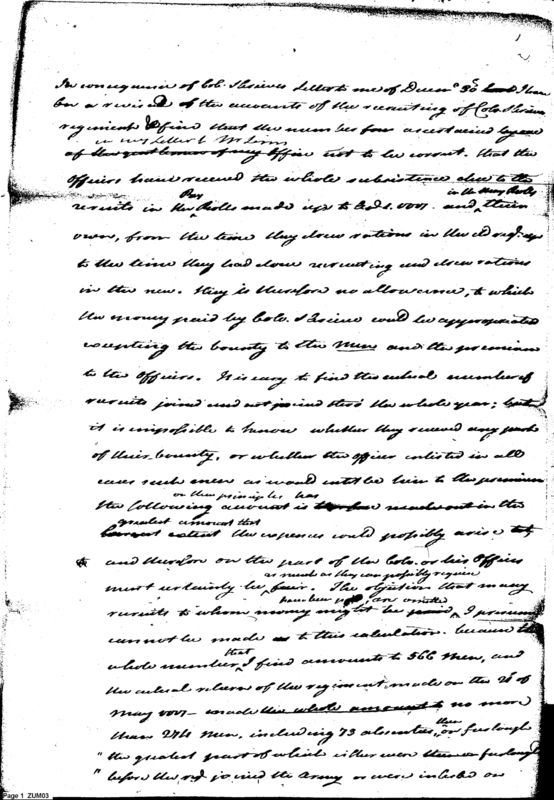 In consequence of Col. Shrieves Letter to me of Decem.r 30 I have
been a revisal of the accounts of the recruiting of Colo. Shrieves
regiment & find that the number four ascertained by one
in my Letter to
of the gentlemen of my Office not to be correct. that the
officers have received the whole subsistence due to the
Pay in the Muster Rolls
recruits in the Rolls made up to and their
own, from the time they drew rations in the old reg.t up
to the time they had done recruiting and drew rations
in the new. there is therefore no allowance, to which
the money paid by Colo. Shrieve could be appropriated
excepting the bounty to the Men and the premium
to the Officers. It is easy to find the actual number of
recruits joined and not joined thro' the whole year; but
it is impossible to know whether they received any part
of their bounty, or whether the officer enlisted in all
cases such men as would entitle him to the premium
on these principles has
the following account is made out in the
greatest amount that
largest extent the expences could possibly arise to
and therefore on the part of the Colo. or his Officers
as much as they can possibly require
must certainly be fair. The objection that many
have been not are omitted
recruits to whom money might be paid, I presume
cannot be made to this calculation. because the
that
whole number I find amounts to 566 Men, and
the actual return of the regiment made on the
May made the whole amount to no more
then
than 274 Men, including 73 absentees, on furlough
"the greatest part of which either were on furlough
"before the reg. joined the Army or were inlisted on
Page 1 ZUM03